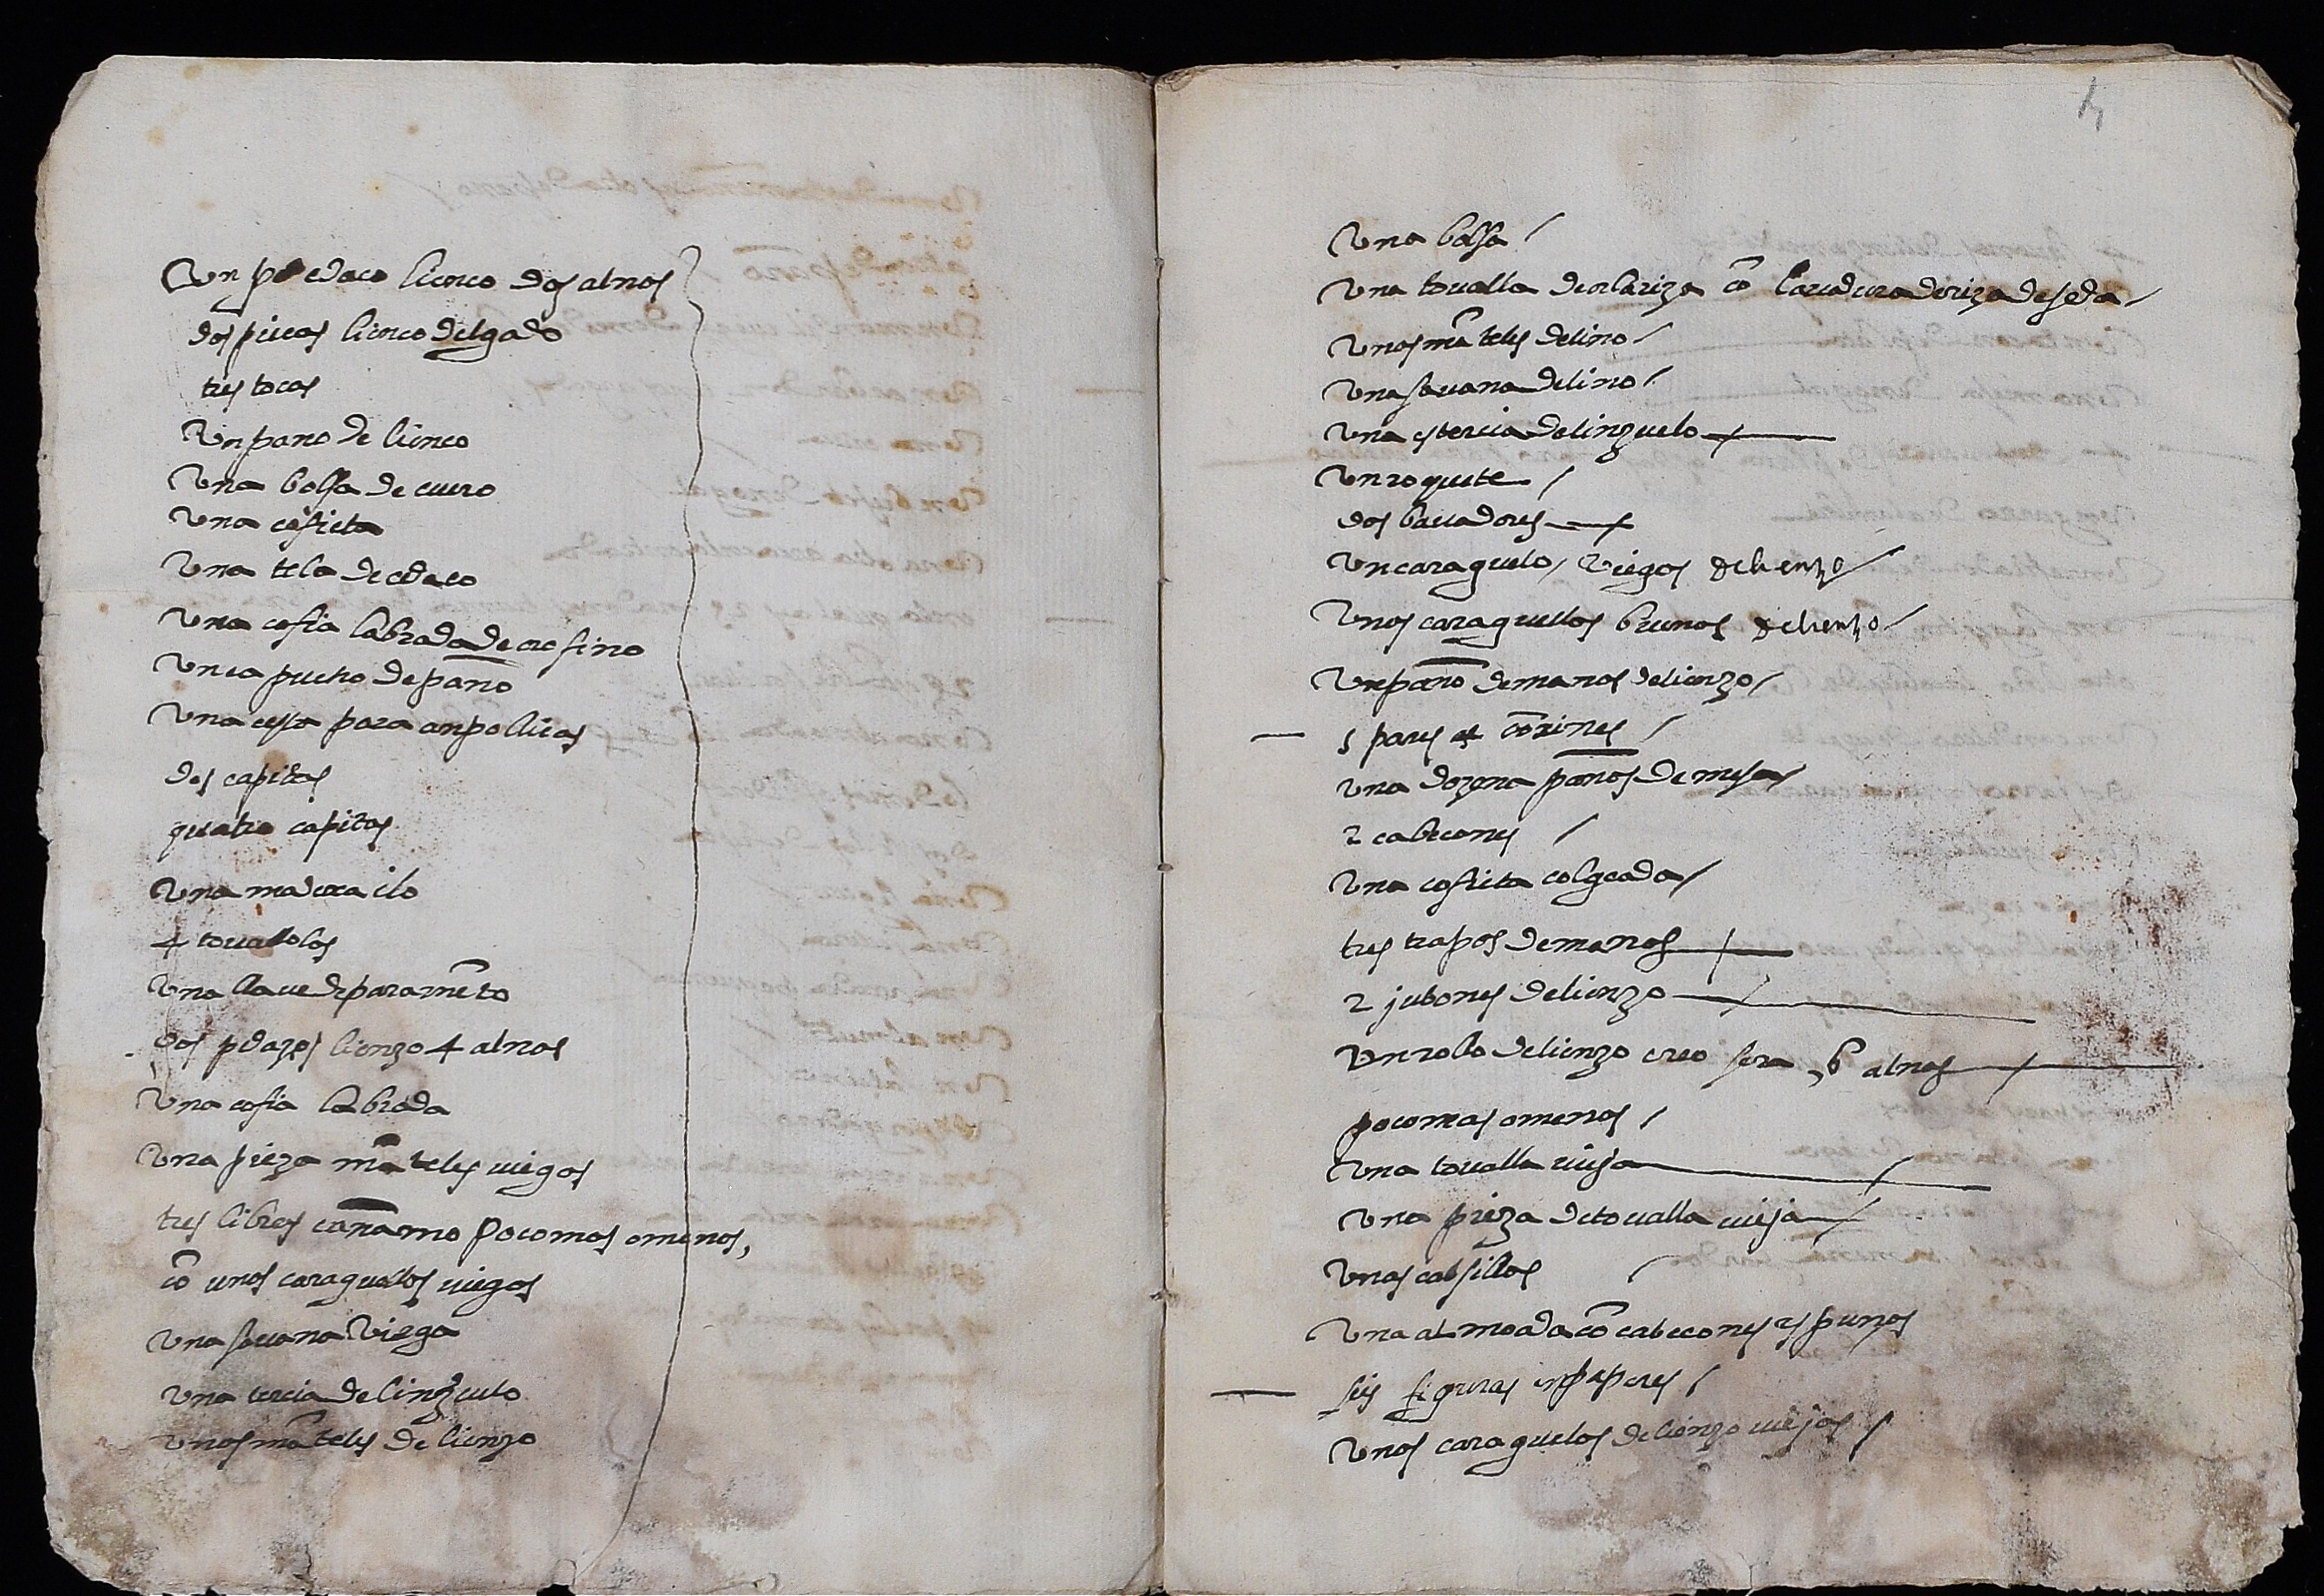 Un pedaco lienco dos alnas
dos piecas lienco delgado
tres tocas
Un pano de lienco
Una bolsa de cuero
Una cofieta
Una tela de cedaco
Una cofia labrada de oro fino
Un capucho de paño
Una cesta para anpollicas
dos capitas
quatro capitas
Una madexa ilo
4 touallolas
Una llaue de paramēto
dos pedazos lienzo 4 alnas
Una cofia labrada
Una pieza māteles uiegos
tres libres cañamo poco mas o menos,
cō unos caraguellos uiegos
Una sauana Viega
Una tercia de linzuelo
Unos māteles de lienzo
4
Una bolsa /
Una toualla de orlariza cō de seda /
Unos māteles de lino /
Una sauana de lino /
Una estercia de linzuelo
Un roquete /
dos
Un caraguelo, Viegos de lienzo /
Unos caraguellos buenos de lienzo /
Un paño de manos de lienzo /
5 pares coxines /
Una dozena paños de mesa /
2 cabecones /
Una cofieta colgada /
tres trapos de manos
2 jubones de lienzo
Un rollo de lienzo creo sera alnas
poco mas o menos /
Una toualla uieja
Una pieza de toualla uieja
Unas calsillas /
Una almoada cō cabecones y punos
seis figuras en papeles /
Unos caraguelos de lienzo uiejos /